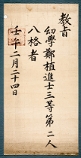 教旨
幼學鄭植進士三等第二人
入格者
壬午二月二十四日